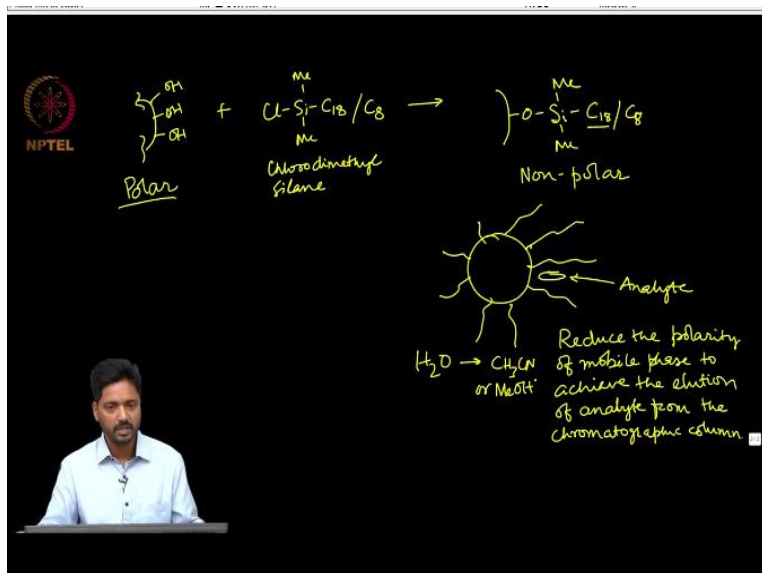 NPTEL
OH
OH
OH
Polar
+
Me
Cl-Si-C18/C8
Me
Chlorodimethyl
silane
→
Me
-O-Si-C18/C8
Me
Non-polar
Analyte
H2O → CH3CN
or MeOH
Reduce the polarity
of mobile phase to
achieve the elution
of analyte from the
chromatographic column